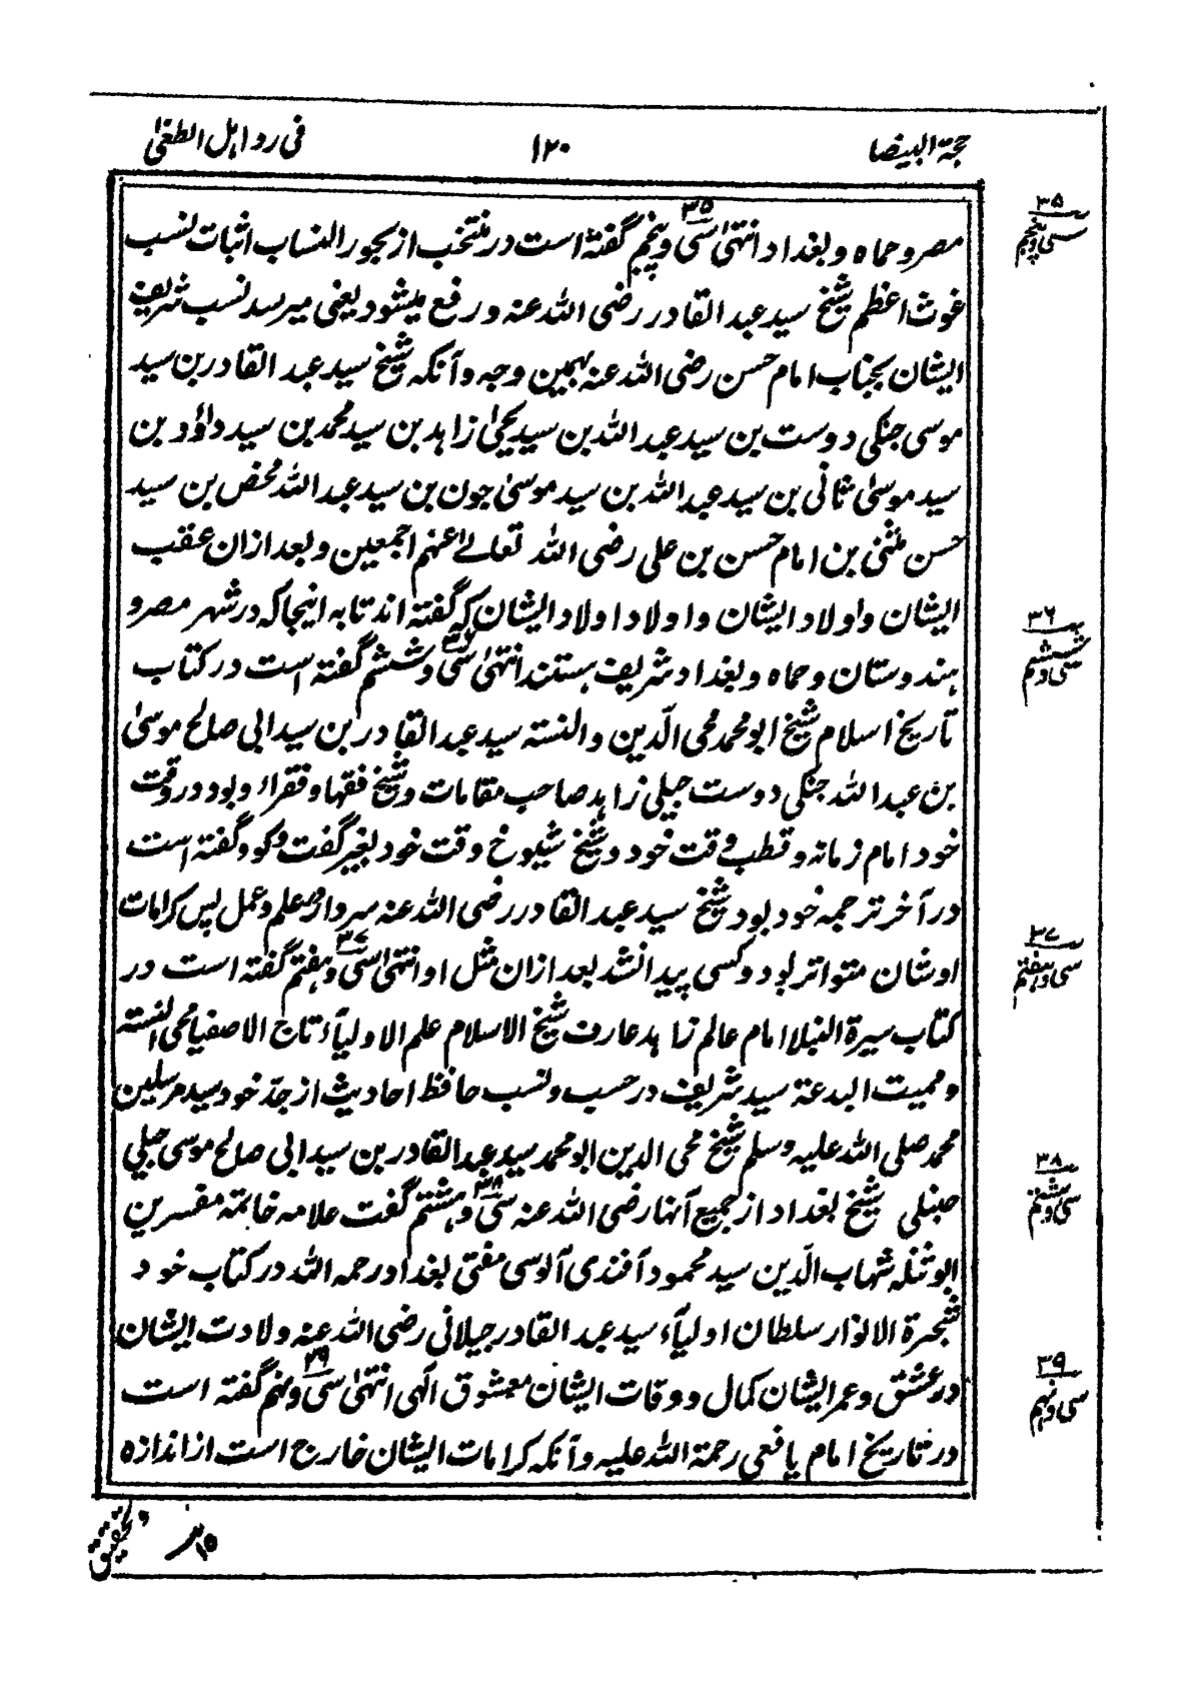 حجة البیضا
۱۲۰
فی رد اہل الطغیٰ
مصر و حماه و بغداد انتہیٰ سی و پنجم گفتہ است در منتخب از بحور النساب اثبات نسب
غوث اعظم شیخ سید عبد القادر رضی اللہ عنہ و رفع میشود یعنی میرسد نسب شریف
ایشان بجناب امام حسن رضی اللہ عنہ بہمین وجہ و آنکہ شیخ سید عبد القادر بن سید
موسی جنگی دوست بن سید عبد اللہ بن سید یحیٰی زاہد بن سید محمد بن سید داؤد بن
سید موسیٰ ثانی بن سید عبد اللہ بن سید موسیٰ جون بن سید عبد اللہ محض بن سید
حسن مثنی بن امام حسن بن علی رضی اللہ تعالےٰ عنہم اجمعین و بعد ازان عقب
ایشان و اولاد ایشان و اولاد اولاد ایشان کہ گفتہ اند تا بہ اینجا کہ در شہر مصر و
ہندوستان و حماه و بغداد شریف ہستند انتہیٰ سی و ششم گفتہ است در کتاب
تاریخ اسلام شیخ ابو محمد محی الدّین والسنتہ سید عبد القادر بن سید ابی صالح موسیٰ
بن عبد اللہ جنگی دوست جیلی زاہد صاحب مقامات و شیخ فقہا و فقراء و بود در وقت
خود امام زمانہ و قطب وقت خود و شیخ شیوخ وقت خود بغیر گفت و گو و گفتہ است
در آخر ترجمہ خود بود شیخ سید عبد القادر رضی اللہ عنہ سردار علم و عمل پس کرامات
اوشان متواتر بود و کسی پیدا نشد بعد ازان مثل او انتہیٰ سی و ہفتم گفتہ است در
کتاب سیرة النبلا امام عالم زاہد عارف شیخ الاسلام علم الاولیآء تاج الاصفیا محی السنتہ
و ممیت البدعتہ سید شریف در حسب و نسب حافظ احادیث از جدّ خود سید مرسلین
محمد صلی اللہ علیہ وسلم شیخ محی الدین ابو محمد سید عبد القادر بن سید ابی صالح موسی جیلی
حنبلی شیخ بغداد از جمیع آنہا رضی اللہ عنہ سی و ہشتم گفت علامہ خاتمۃ مفسرین
ابو ثنلہ شہاب الدّین سید محمود آفندی آلوسی مفتی بغداد رحمہ اللہ در کتاب خود
شجرة الانوار سلطان اولیآء سید عبد القادر جیلانی رضی اللہ عنہ ولادت ایشان
در عشق و عمر ایشان کمال و وفات ایشان معشوق الٰہی انتہیٰ سی و نہم گفتہ است
در تاریخ امام یافعی رحمة اللہ علیہ و آنکہ کرامات ایشان خارج است از اندازه
۳۵
سی و پنجم
۳۶
سی و ششم
۳۷
سی و ہفتم
۳۸
سی و ہشتم
۳۹
سی و نہم
و تحقیق